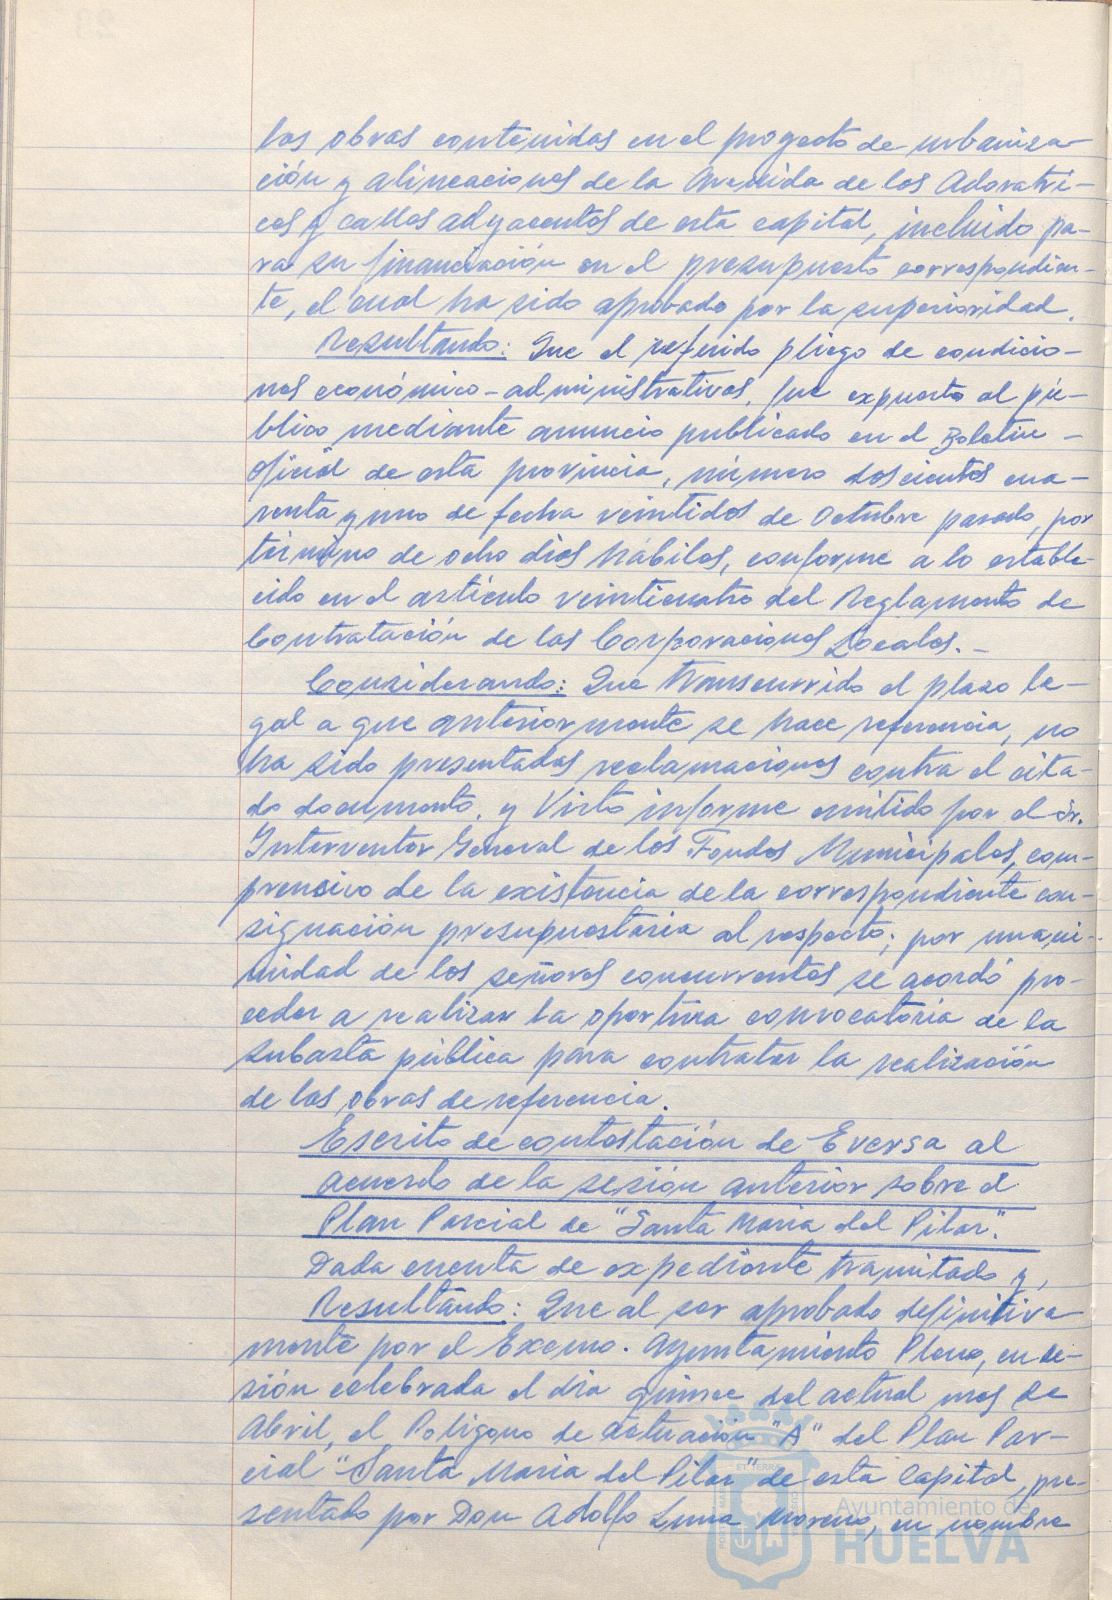 las obras contenidas en el proyecto de urbaniza-
ción y alineaciones de la Avenida de las Adoratri-
ces y calles adyacentes de esta capital, incluido pa-
ra su financiación en el presupuesto correspondien-
te, el cual ha sido aprobado por la superioridad.
Resultando: Que el referido pliego de condicio-
nes económico-administrativas, fue expuesto al pú-
blico mediante anuncio publicado en el Boletín -
oficial de esta provincia, número doscientos cua-
renta y uno de fecha veintidos de Octubre pasado, por
término de ocho dias hábiles, conforme a lo estable-
cido en el artículo veinticuatro del Reglamento de
Contratación de las Corporaciones Locales. -
Considerando: Que transcurrido el plazo le-
gal a que anteriormente se hace referencia, no
ha sido presentadas reclamaciones contra el cita-
do documento. y Visto informe emitido por el Sr.
Interventor General de los Fondos Municipales, com-
prensivo de la existencia de la correspondiente con-
signación presupuestaria al respecto; por unani-
midad de los señores concurrentes se acordó pro-
ceder a realizar la oportuna convocatoria de la
subasta pública para contratar la realización
de las obras de referencia.
Escrito de contestación de Eversa al
acuerdo de la sesión anterior sobre el
Plan Parcial de "Santa Maria del Pilar".
Dada cuenta de expediente tramitado y,
Resultando: Que al ser aprobado definitiva
mente por el Excmo. Ayuntamiento Pleno, en se-
sión celebrada el dia quince del actual mes de
Abril, el Poligono de actuación "A" del Plan Par-
cial "Santa Maria del Pilar" de esta Capital, pre-
sentado por Don Adolfo Luna Moreno, en nombre
Ayuntamiento de
HUELVA